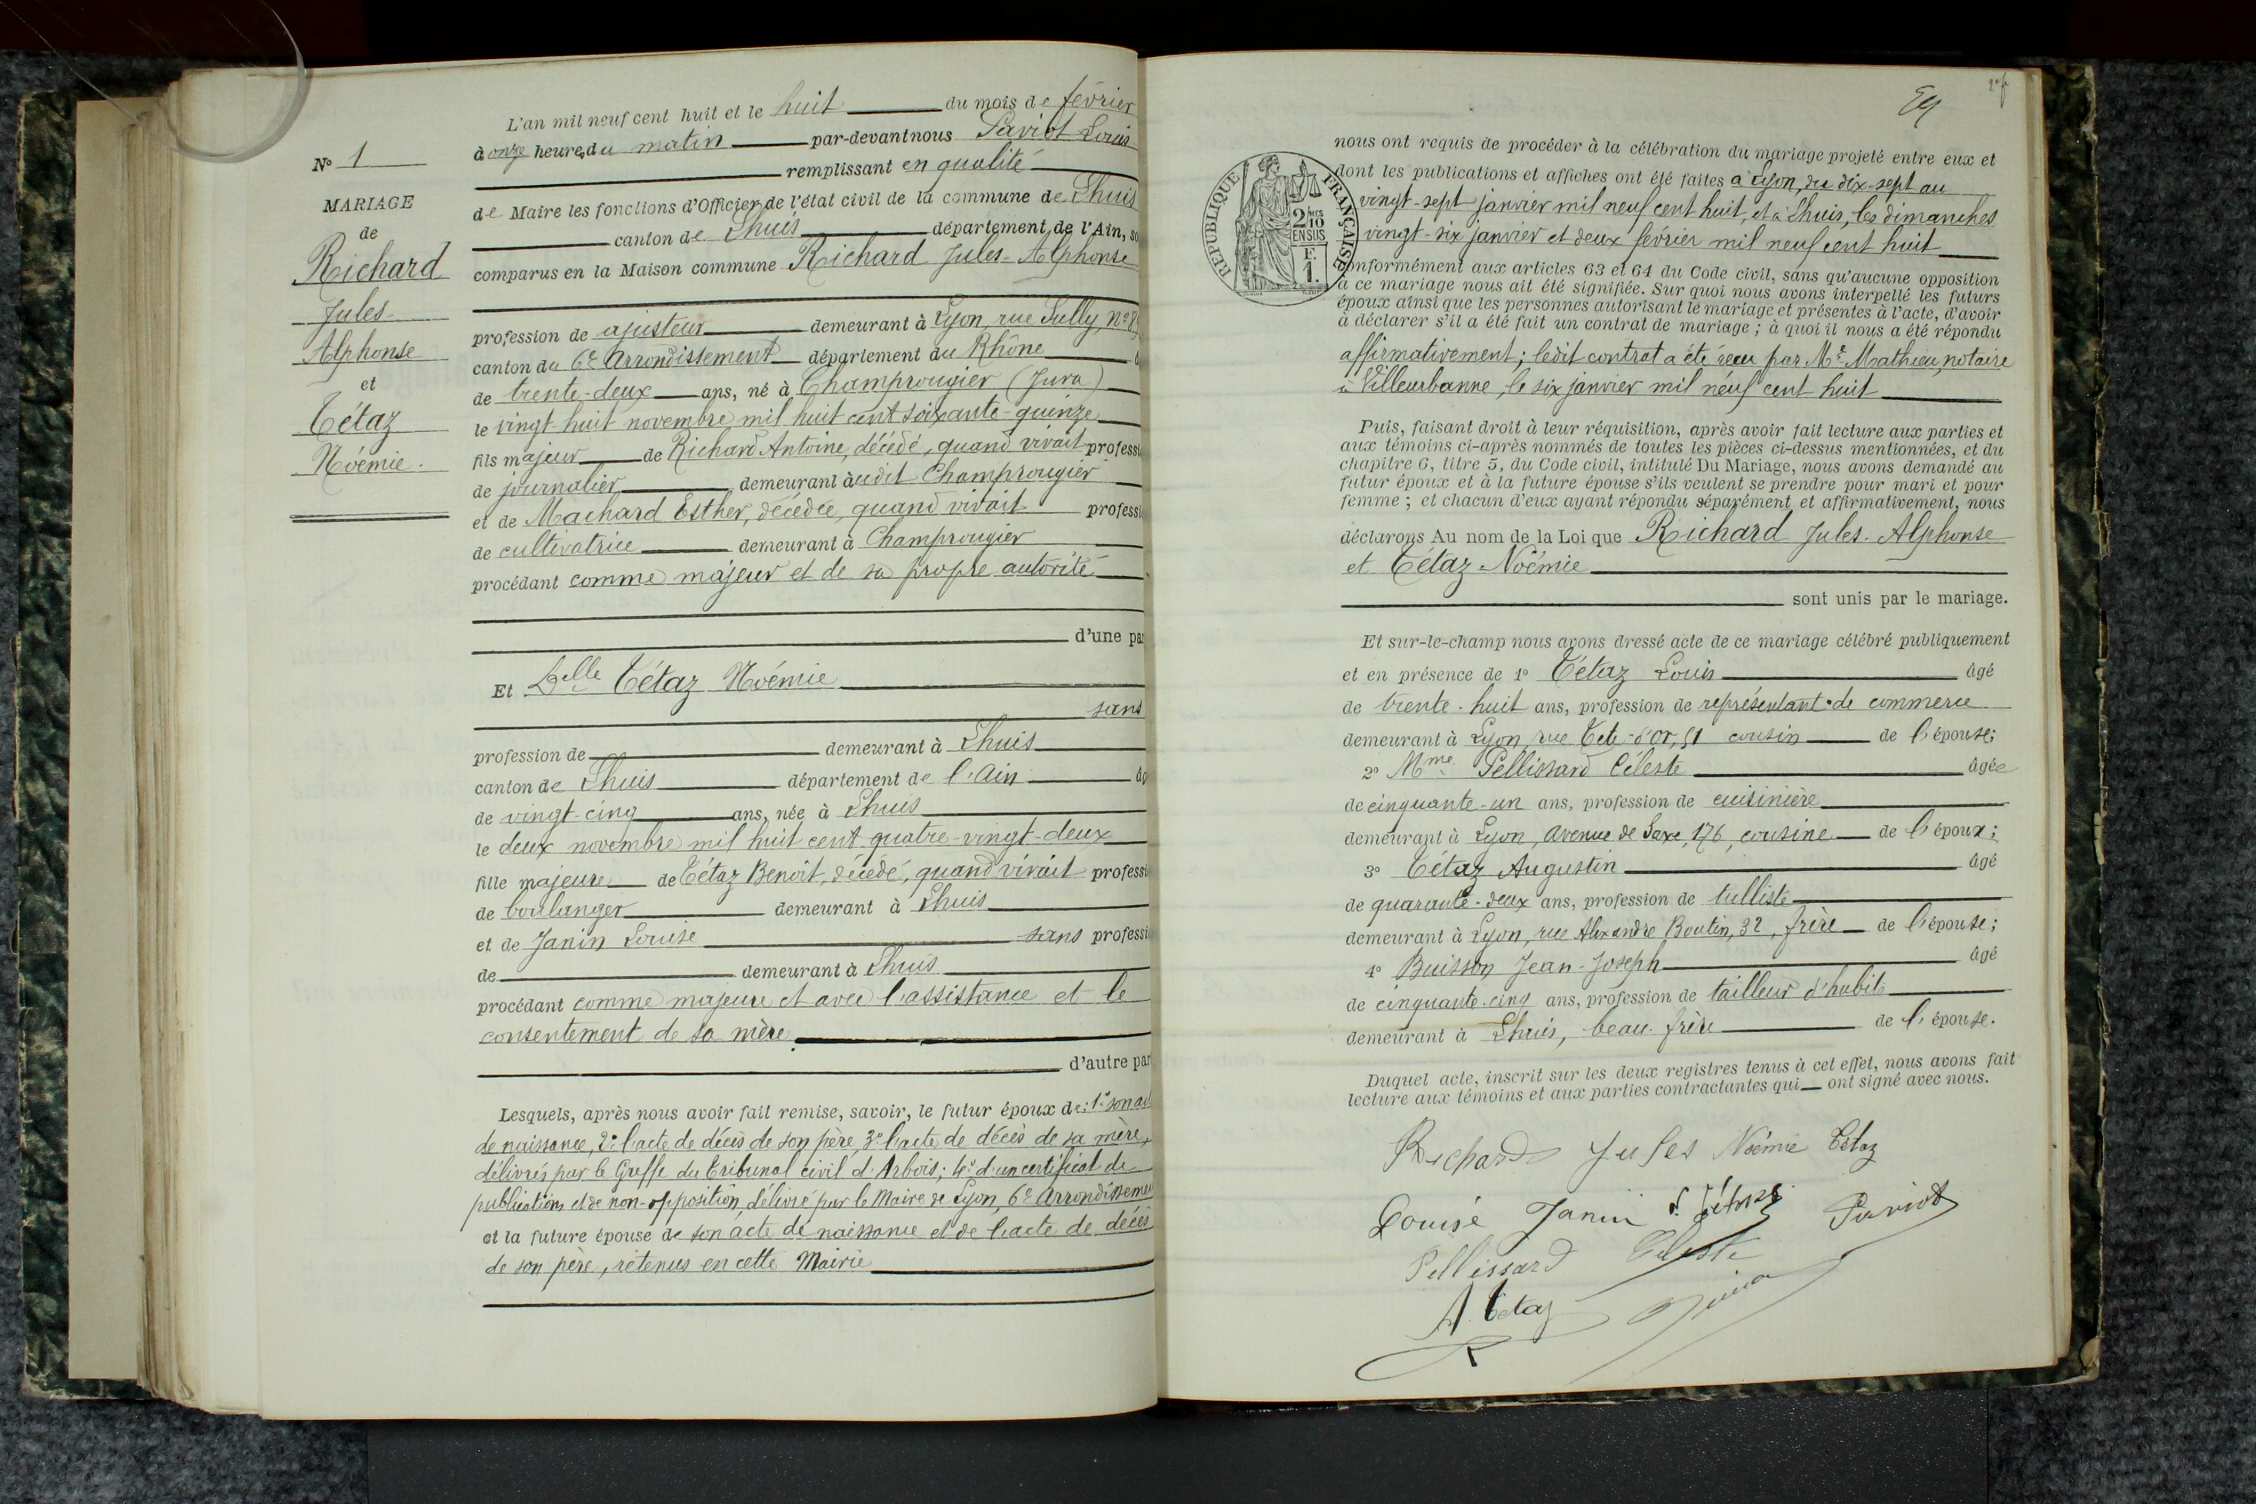 N° 1
MARIAGE
de
Richard
Jules
Alphonse
et
Tétaz
Noémie.
L'an mil neuf cent huit et le huit du mois de février
à onze heures du matin par-devant nous Paviot Louis
remplissant en qualité
de Maire les fonctions d'Officier de l'état civil de la commune de Lhuis
canton de Lhuis département de l'Ain, so
comparus en la Maison commune Richard Jules-Alphonse
profession de ajusteur demeurant à Lyon, rue Sully, N°
canton du 6e Arrondissement département du Rhône
de trente-deux ans, né à Champrougier (Jura)
le vingt-huit novembre mil huit cent soixante-quinze
fils majeur de Richard Antoine, décédé, quand vivait professi
de journalier demeurant audit Champrougier
et de Machard Esther, décédée, quand vivait professi
de cultivatrice demeurant à Champrougier
procédant comme majeur et de sa propre autorité
d'une par
Et Delle Tétaz Noémie
sans
profession de demeurant à Lhuis
canton de Lhuis département de l'Ain âg
de vingt-cinq ans, née à Lhuis
le deux novembre mil huit cent quatre-vingt-deux
fille majeure de Tétaz Benoit, décédé, quand vivait professi
de boulanger demeurant à Lhuis
et de Janin Louise sans professi
de demeurant à Lhuis
procédant comme majeure et avec l'assistance et le
consentement de sa mère
d'autre par
Lesquels, après nous avoir fait remise, savoir, le futur époux de: 1° son ac
de naissance, 2° l'acte de décès de son père, 3° l'acte de décès de sa mère,
délivrés par le Greffe du Tribunal civil d'Arbois; 4° d'un certificat de
publications et de non-opposition, délivré par le Maire de Lyon, 6e Arrondisseme
et la future épouse de son acte de naissance et de l'acte de décès
de son père, retenus en cette Mairie
nous ont requis de procéder à la célébration du mariage projeté entre eux et
dont les publications et affiches ont été faites à Lyon, du dix-sept au
vingt-sept janvier mil neuf cent huit, et à Lhuis, les dimanches
vingt-six janvier et deux février mil neuf cent huit
conformément aux articles 63 et 64 du Code civil, sans qu'aucune opposition
à ce mariage nous ait été signifiée. Sur quoi nous avons interpellé les futurs
époux ainsi que les personnes autorisant le mariage et présentes à l'acte, d'avoir
à déclarer s'il a été fait un contrat de mariage; à quoi il nous a été répondu
affirmativement; ledit contrat a été reçu par Me Mathieu, notaire
à Villeurbanne, le six janvier mil neuf cent huit
RÉPUBLIQUE FRANÇAISE
2/10
EN SUS
F.
1.
Puis, faisant droit à leur réquisition, après avoir fait lecture aux parties et
aux témoins ci-après nommés de toutes les pièces ci-dessus mentionnées, et du
chapitre 6, titre 5, du Code civil, intitulé Du Mariage, nous avons demandé au
futur époux et à la future épouse s'ils veulent se prendre pour mari et pour
femme; et chacun d'eux ayant répondu séparément et affirmativement, nous
déclarons Au nom de la Loi que Richard Jules-Alphonse
et Tétaz Noémie
sont unis par le mariage.
Et sur-le-champ nous avons dressé acte de ce mariage célébré publiquement
et en présence de 1° Tétaz Louis âgé
de trente-huit ans, profession de représentant de commerce
demeurant à Lyon, rue Tête-d'Or, 51 cousin de l'épouse;
2° Mme Pellissard Céleste âgée
de cinquante-un ans, profession de cuisinière
demeurant à Lyon, avenue de Saxe, 176, cousine de l'époux;
3° Tétaz Augustin âgé
de quarante-deux ans, profession de tulliste
demeurant à Lyon, rue Alexandre Boutin, 32, frère de l'épouse;
4° Buisson Jean-Joseph âgé
de cinquante-cinq ans, profession de tailleur d'habits
demeurant à Lhuis, beau-frère de l'épouse.
Duquel acte, inscrit sur les deux registres tenus à cet effet, nous avons fait
lecture aux témoins et aux parties contractantes qui ont signé avec nous.
Richard Jules Noémie Tétaz
Louise Janin L. Tétaz Paviot
Pellissard Céleste
A. Tetaz